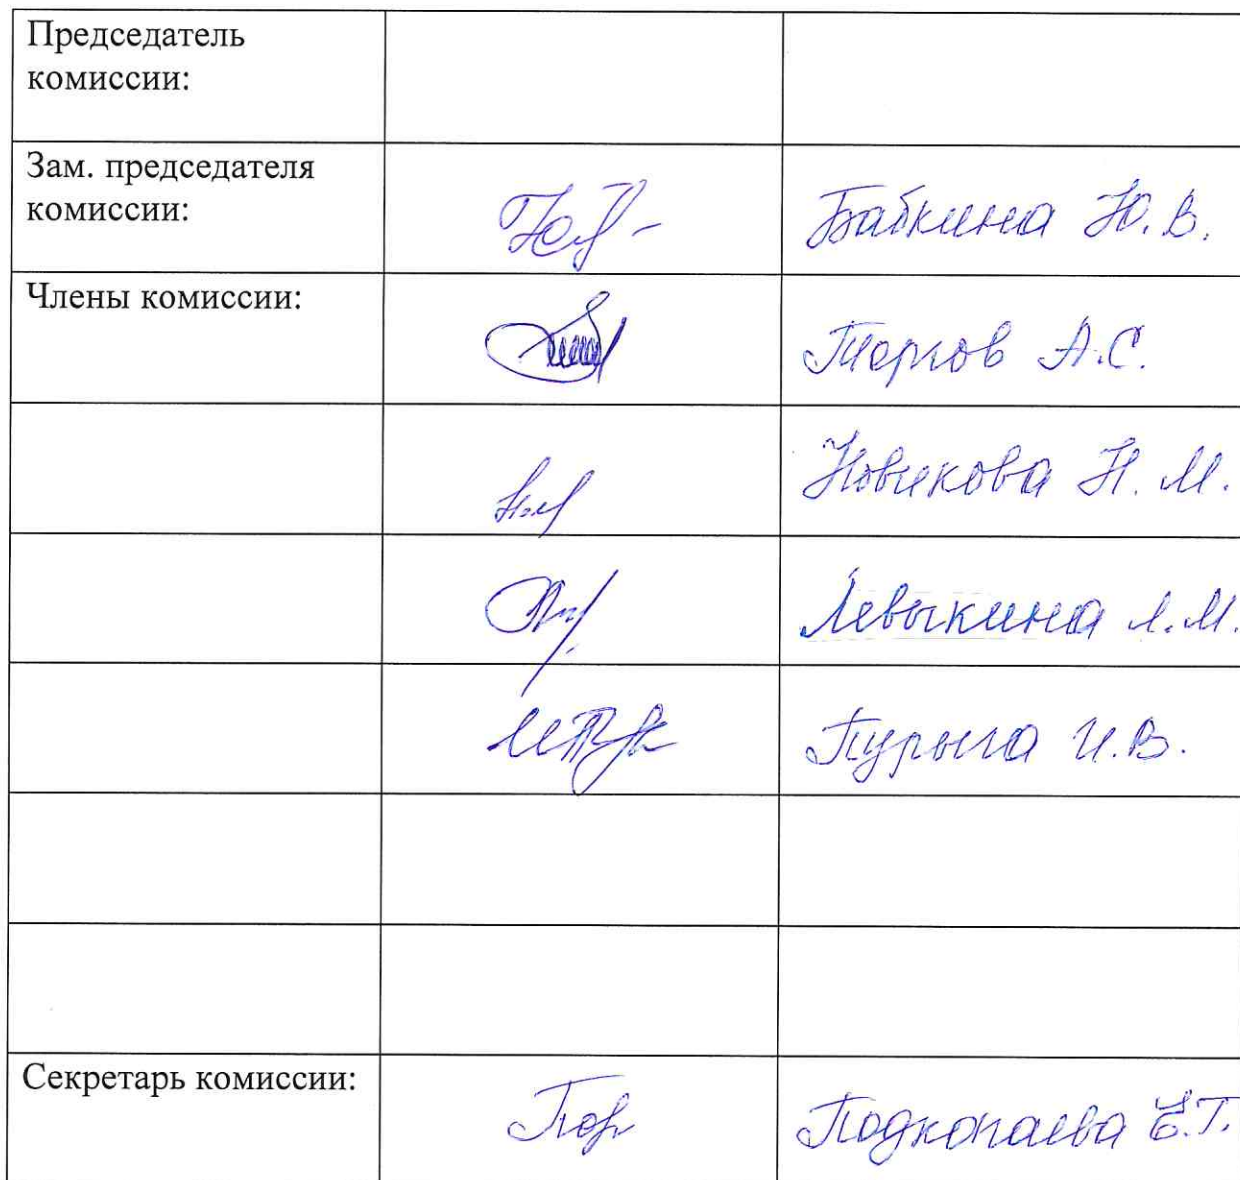 Председатель
комиссии:
Зам. председателя
комиссии:
Бабкина Ю. В.
Члены комиссии:
А.С.
Новикова Н. М.
Левыкина Л. М.
Пурыга И. В.
Секретарь комиссии:
Подкопаева Е.Г.